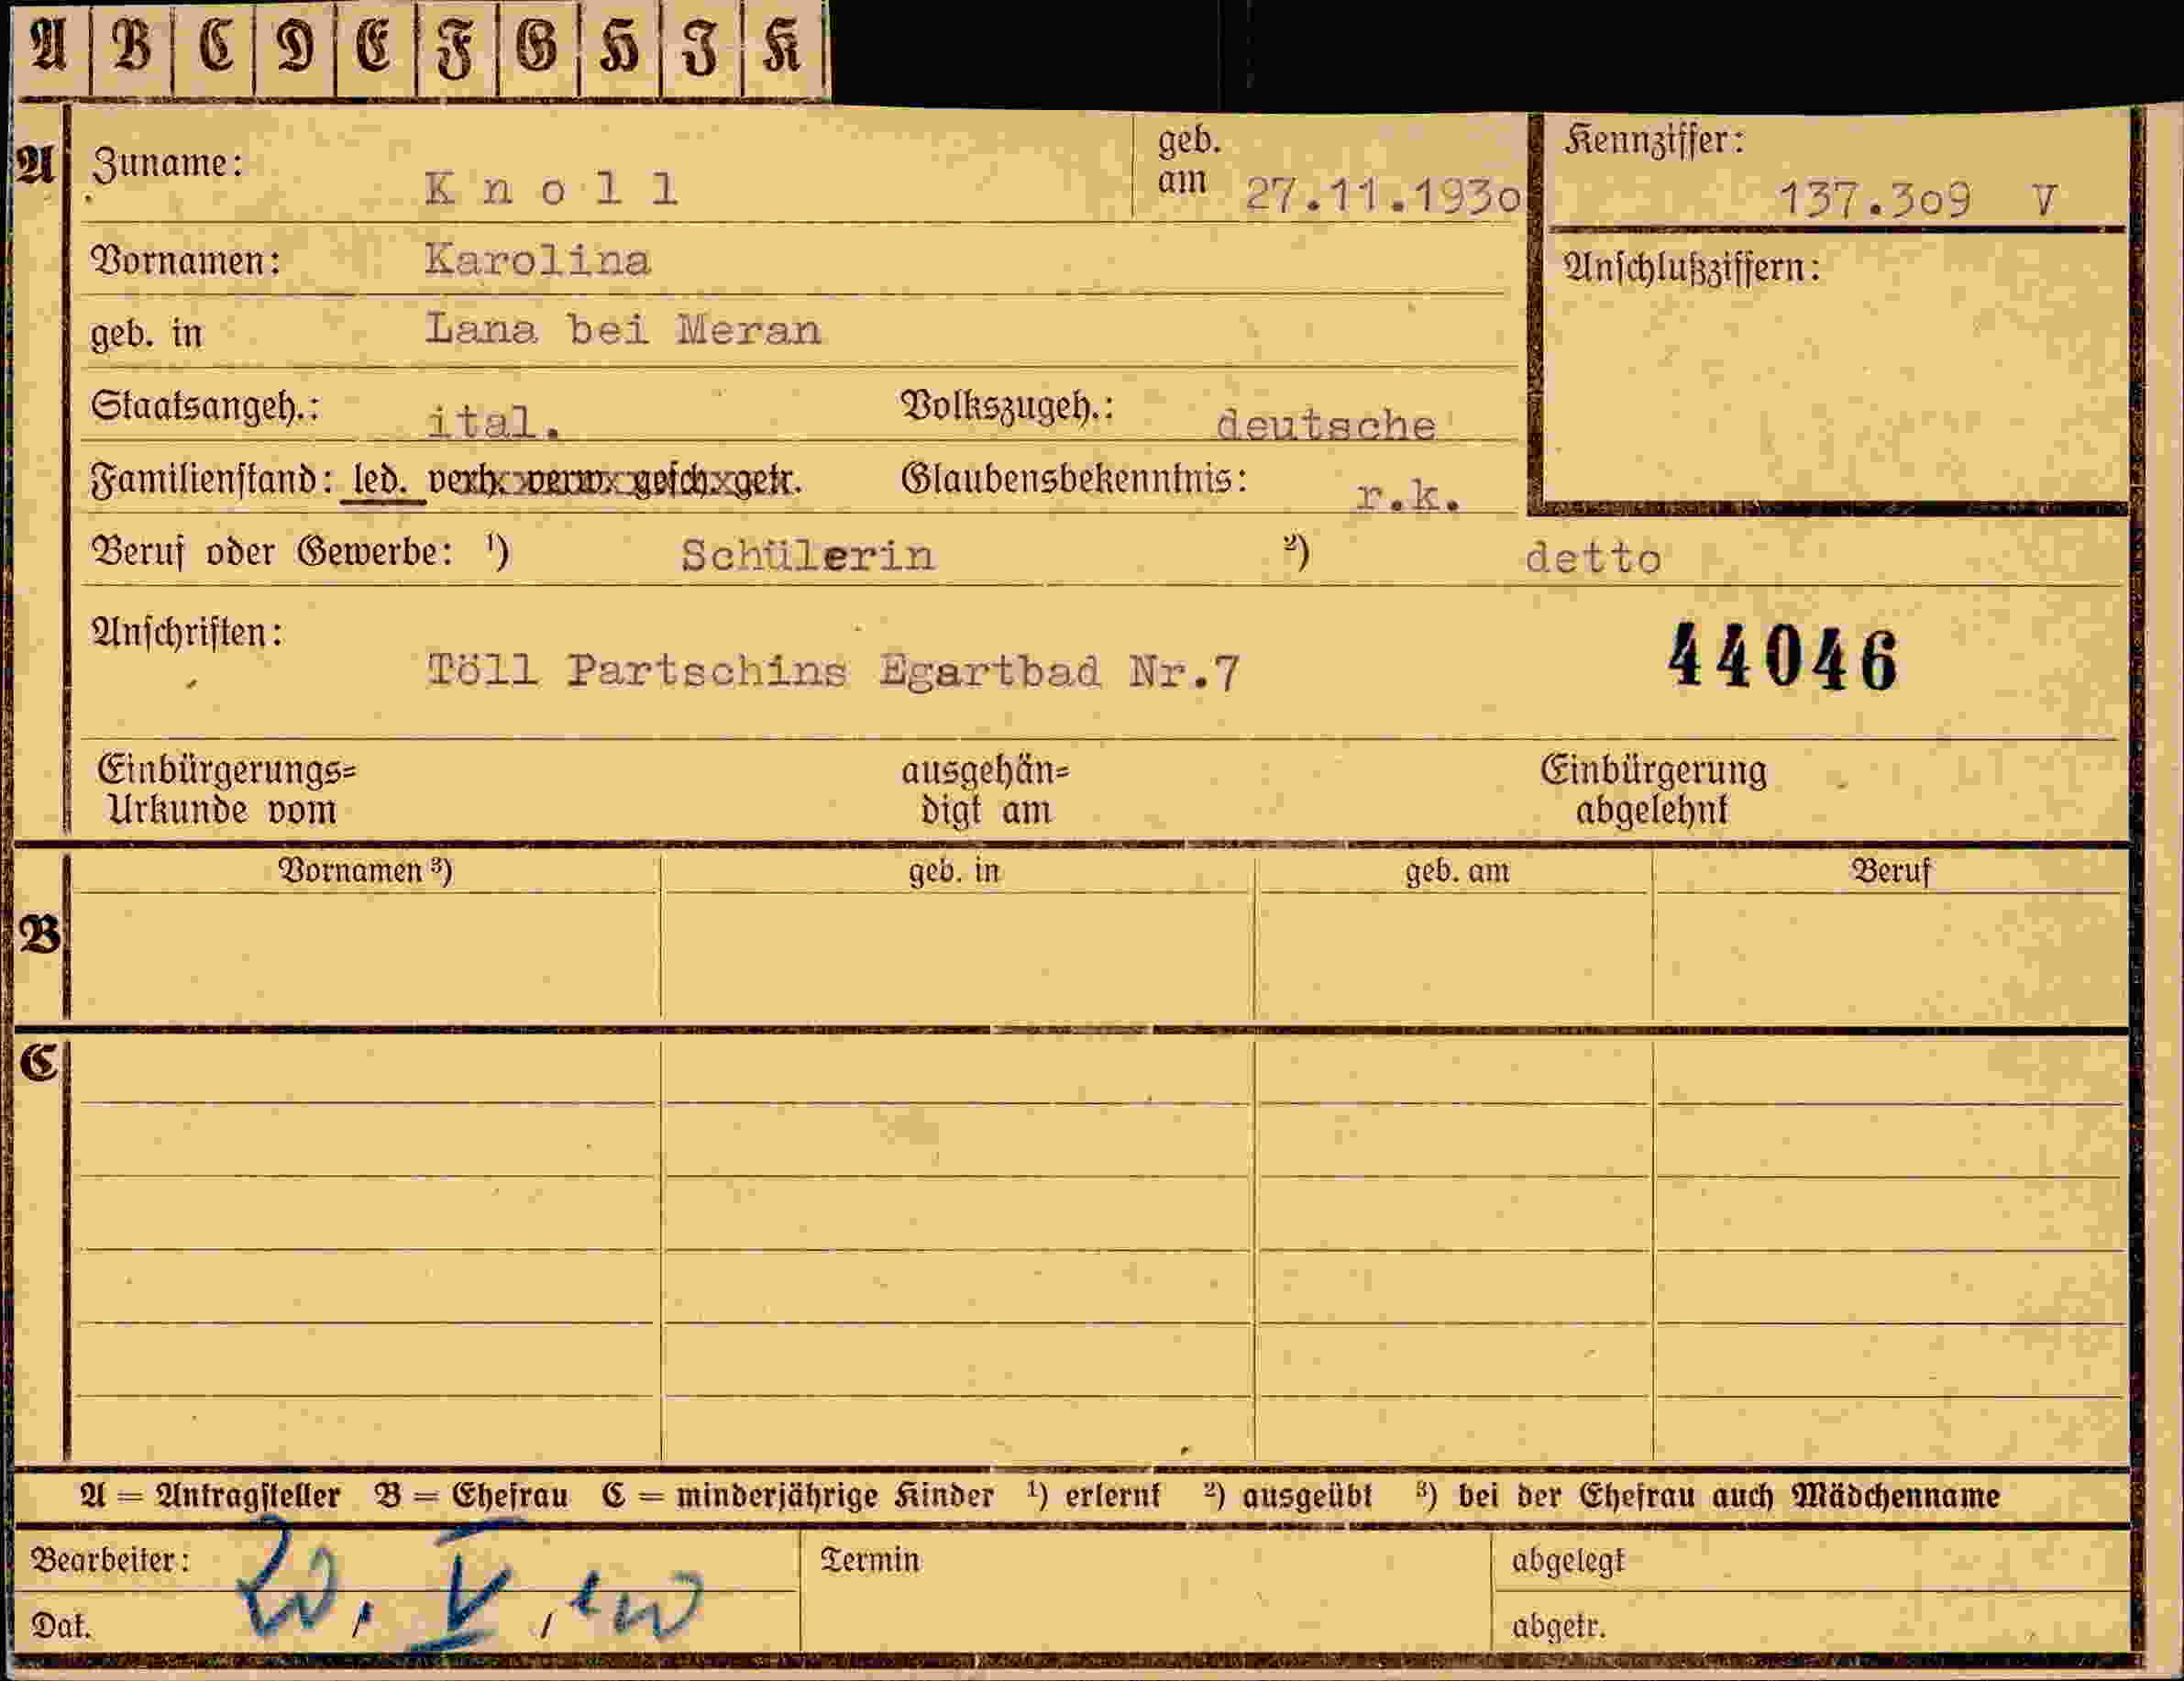 A B C D E F G H I K
A Zuname: Knoll geb. am 27.11.1930 Kennziffer: 137.309 V
Vornamen: Karolina Anschlußziffern:
geb. in Lana bei Meran
Staatsangeh.: ital. Volkszugeh.: deutsche
Familienstand: led. verh. verw. gesch. getr. Glaubensbekenntnis: r.k.
Beruf oder Gewerbe: ¹) Schülerin ²) detto
Anschriften: 44046
Töll Partschins Egartbad Nr.7
Einbürgerungs= ausgehän= Einbürgerung
Urkunde vom digt am abgelehnt
Vornamen ³) geb. in geb. am Beruf
B
C
A = Antragsteller B = Ehefrau C = minderjährige Kinder ¹) erlernt ²) ausgeübt ³) bei der Ehefrau auch Mädchenname
Bearbeiter: Termin abgelegt
Dat. 20. V. 40 abgetr.